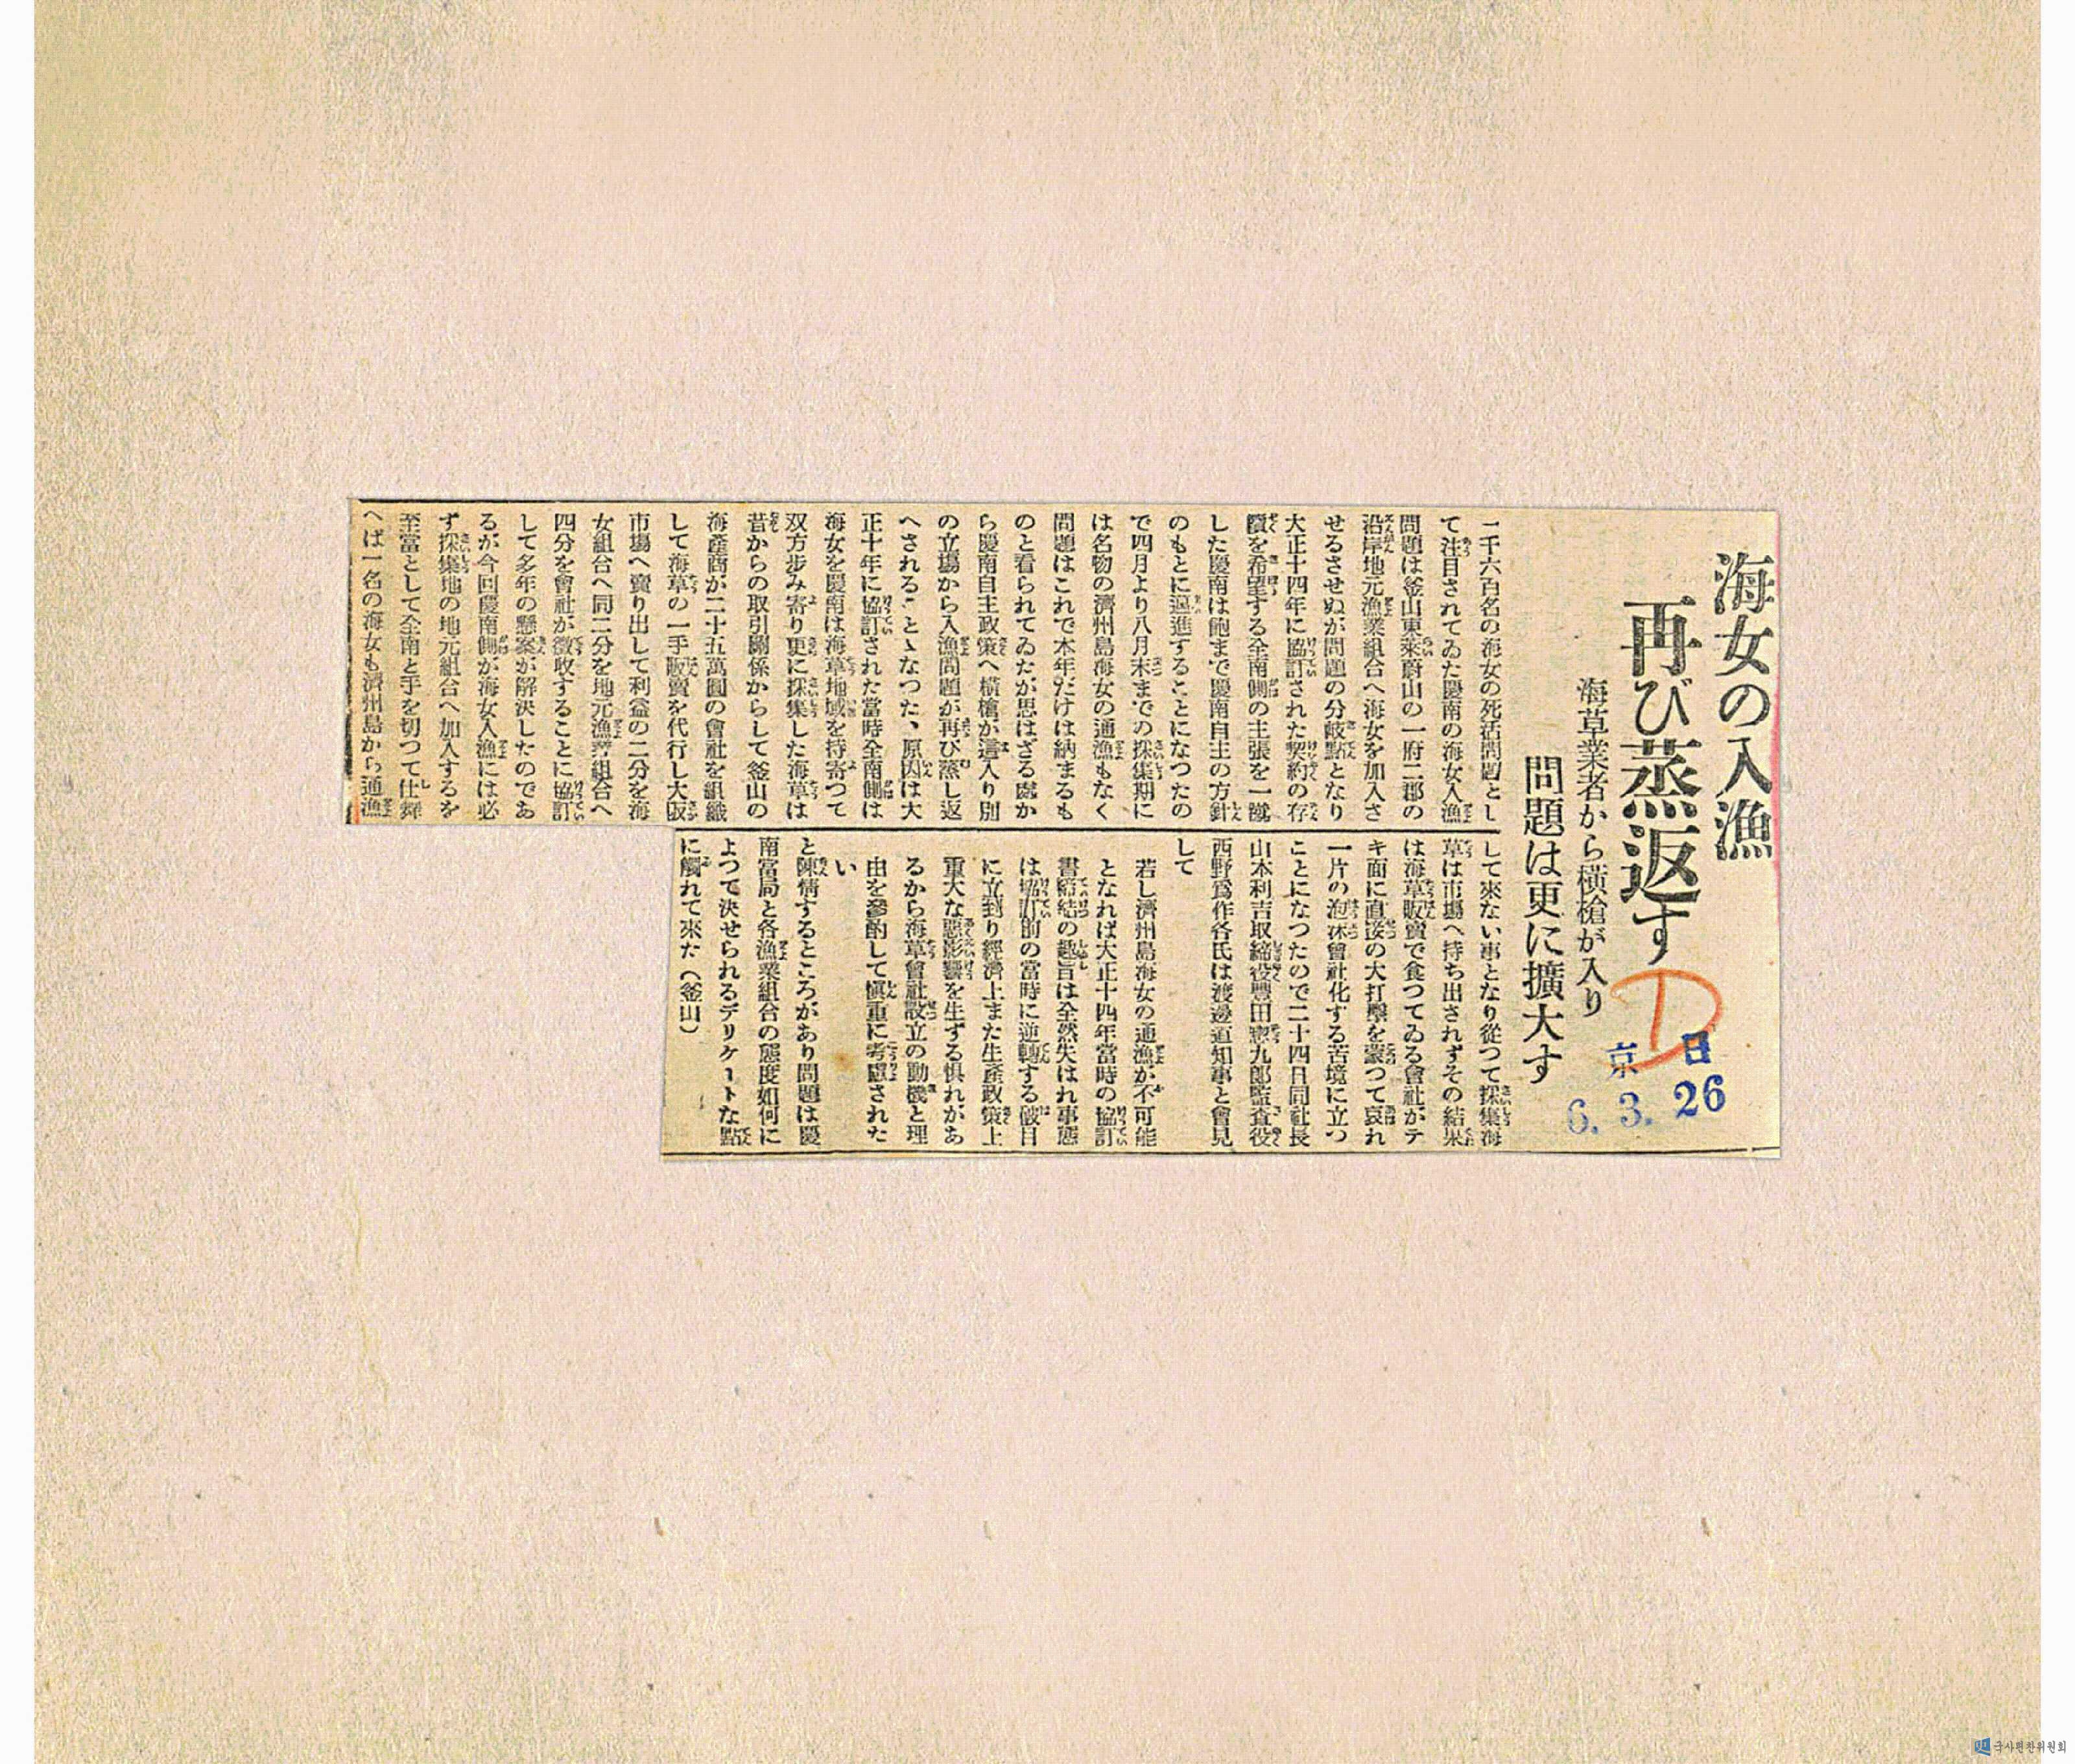 海女の入漁
再び蒸返す
海草業者から横槍が入り
問題は更に擴大す
D
京日
6. 3. 26
二千六百名の海女の死活問題とし
て注目されてゐた慶南の海女入漁
問題は釜山東萊蔚山の一府二郡の
沿岸地元漁業組合へ海女を加入さ
せるさせぬが問題の分岐點となり
大正十四年に協訂された契約の存
續を希望する全南側の主張を一蹴
した慶南は飽まで慶南自主の方針
のもとに邁進することになつたの
で四月より八月末までの採集期に
は名物の濟州島海女の通漁もなく
問題はこれで本年だけは納まるも
のと看られてゐたが思はざる處か
ら慶南自主政策へ横槍が這入り別
の立場から入漁問題が再び蒸し返
へされることゝなつた、原因は大
正十年に協訂された當時全南側は
海女を慶南は海草地域を持寄つて
双方歩み寄り更に採集した海草は
昔からの取引關係からして釜山の
海產商が二十五萬圓の會社を組織
して海草の一手販賣を代行し大阪
市場へ賣り出して利益の二分を海
女組合へ同二分を地元漁業組合へ
四分を會社が徴收することに協訂
して多年の懸案が解決したのであ
るが今回慶南側が海女入漁には必
ず採集地の地元組合へ加入するを
至當として全南と手を切つて仕舞
へば一名の海女も濟州島から通漁
して來ない事となり從つて採集海
草は市場へ持ち出されずその結果
は海草販賣で食つてゐる會社がテ
キ面に直接の大打擊を蒙つて哀れ
一片の泡沫會社化する苦境に立つ
ことになつたので二十四日同社長
山本利吉取締役豐田惣九郎監査役
西野爲作各氏は渡邊道知事と會見
して
若し濟州島海女の通漁が不可能
となれば大正十四年當時の協訂
書締結の趣旨は全然失はれ事態
は協訂前の當時に逆轉する破目
に立到り經濟上また生產政策上
重大な惡影響を生ずる惧れがあ
るから海草會社設立の動機と理
由を參酌して愼重に考慮された
い
と陳情するところがあり問題は慶
南當局と各漁業組合の態度如何に
よつて決せられるデリケートな點
に觸れて來た（釜山）
국사편찬위원회